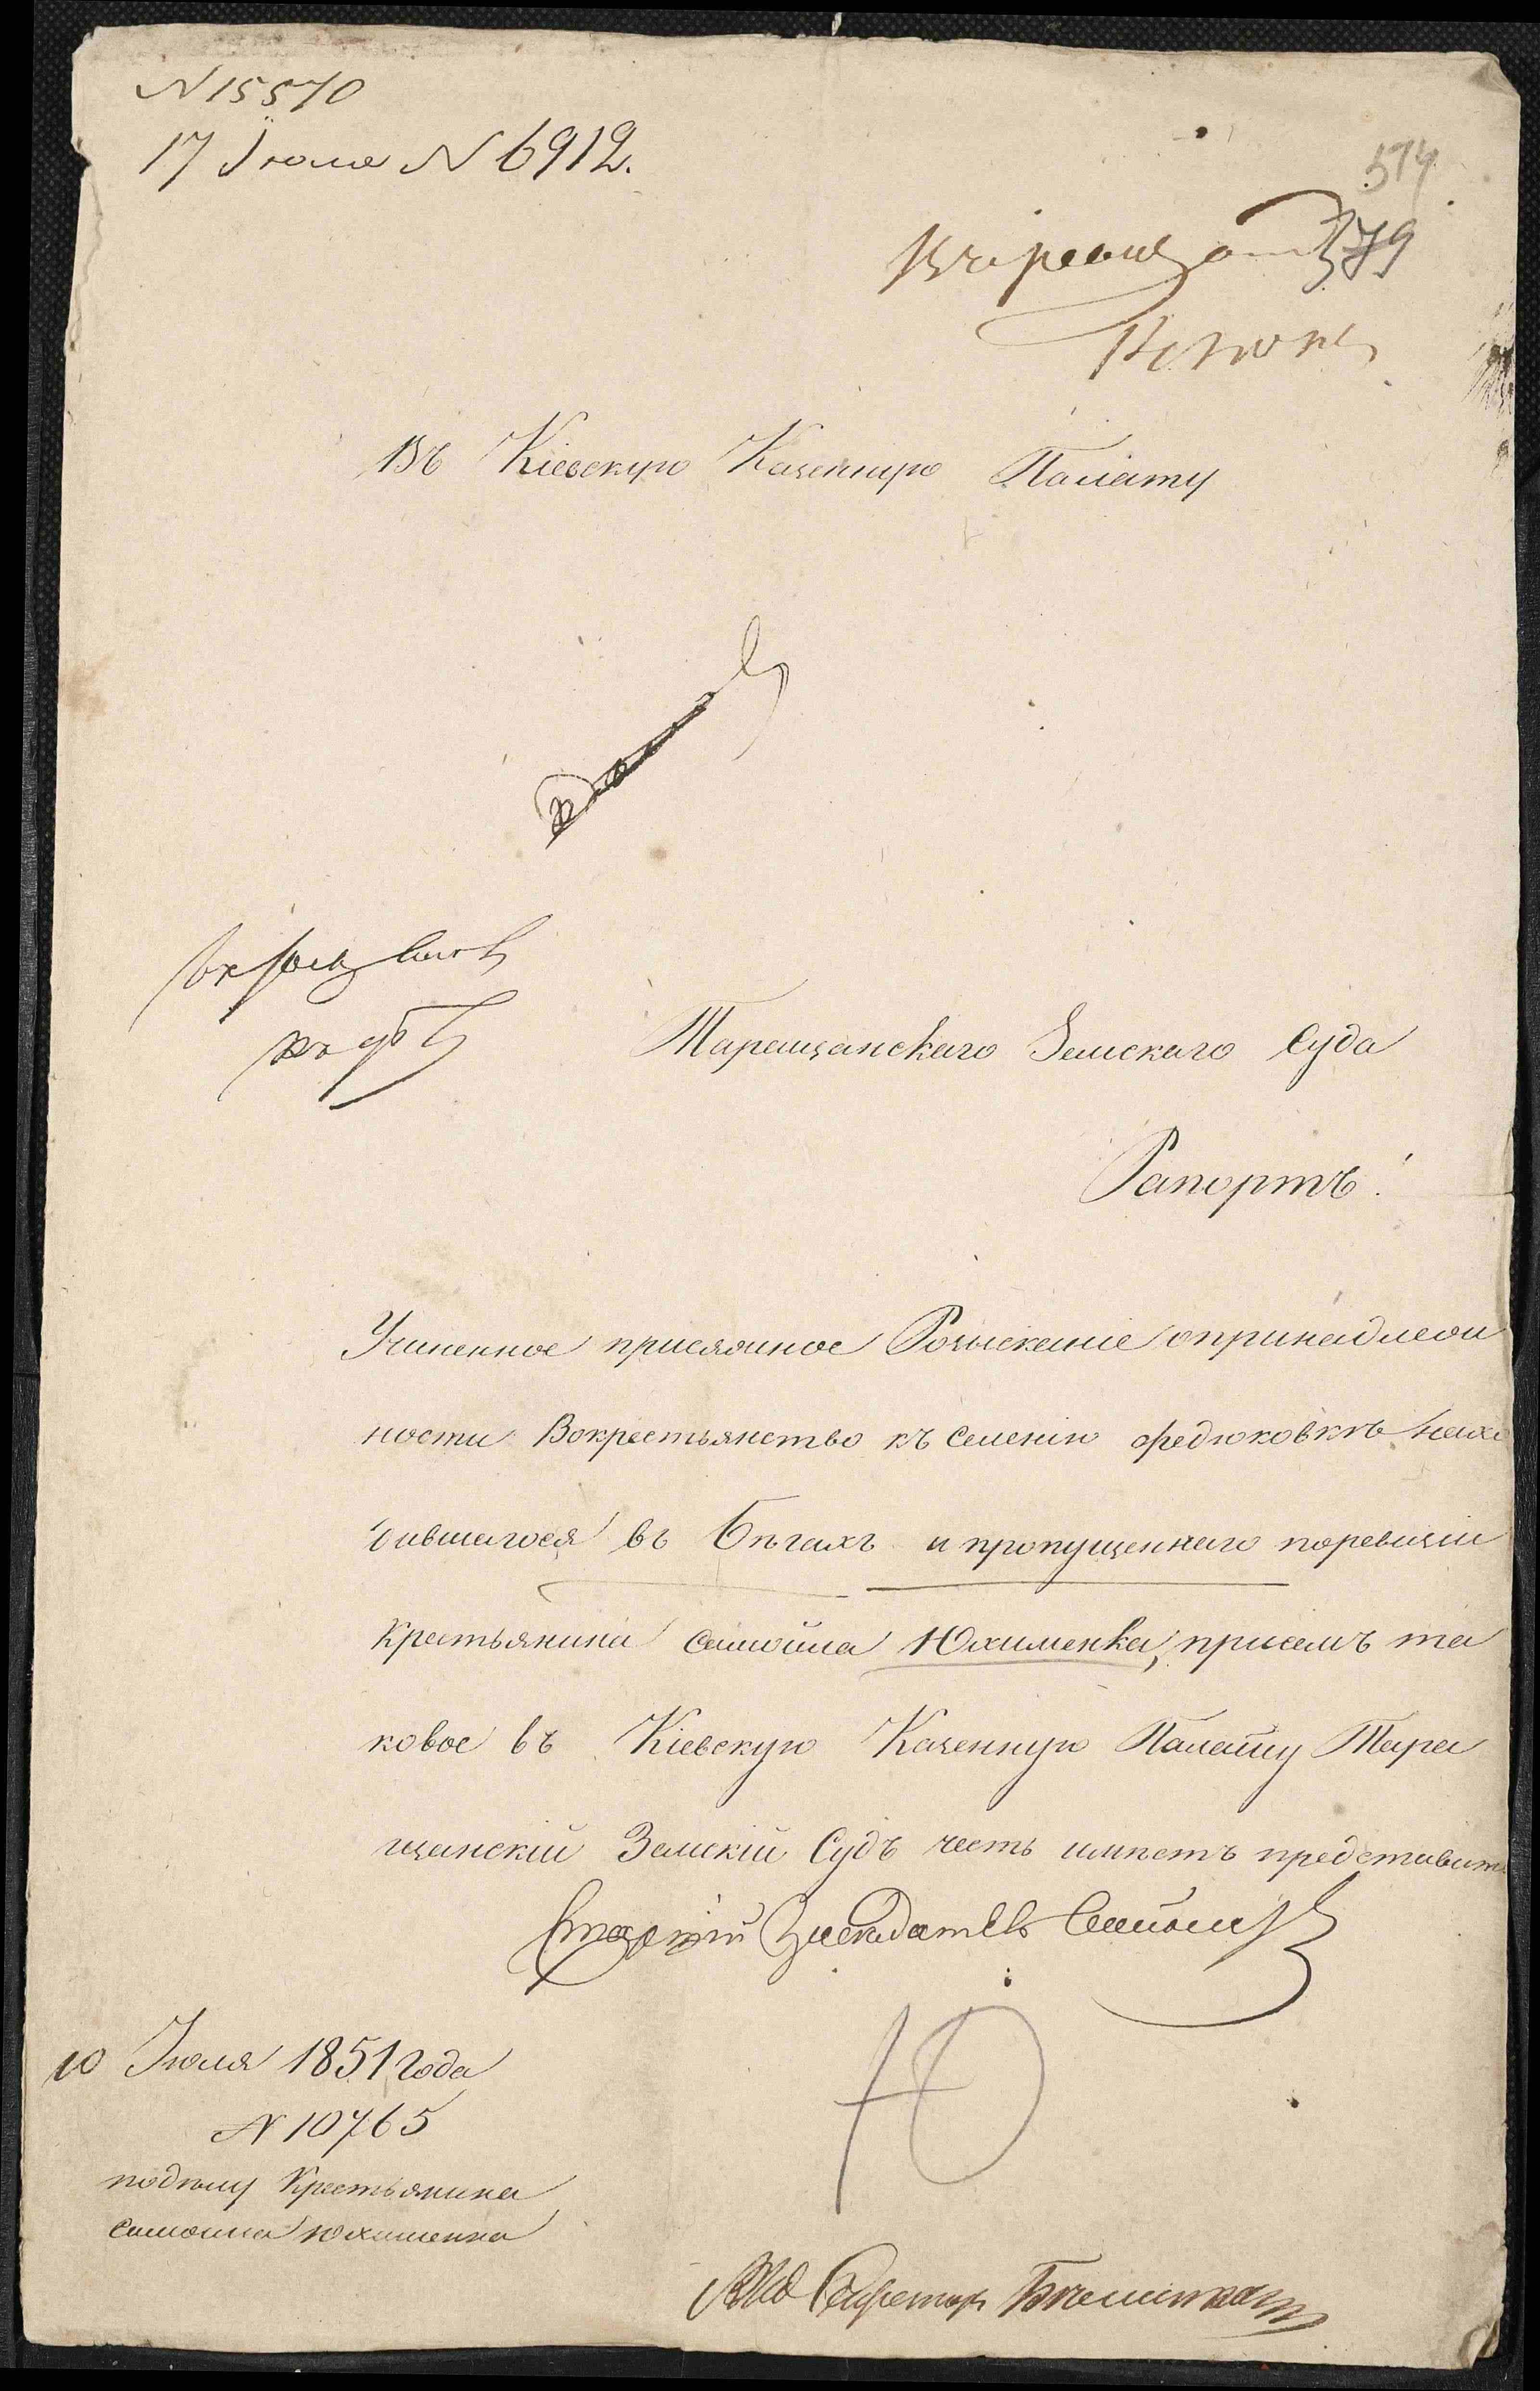 N 15570
17 Іюля N 6912.
574
379
Въ Кіевскую Казенную Палату
Таращанскаго Земскаго Суда
Рапортъ.
Учиненное присяжное Розысканіе опринадлеж
ности Вокрестьянство къ селенію Федюковкѣ нахо
дившагося въ Бѣгахъ и пропущеннаго поревизіи
Крестьянина Самойла Юхименка, присемъ та
ковое въ Кіевскую Казенную Палату Тара
щанскій Земскій Судъ честь имѣетъ представить
Старшій Заседатель
Ю
10 Іюля 1851 года
N 10765
подѣлу Крестьянина
Самойла Юхименка
Секретарь